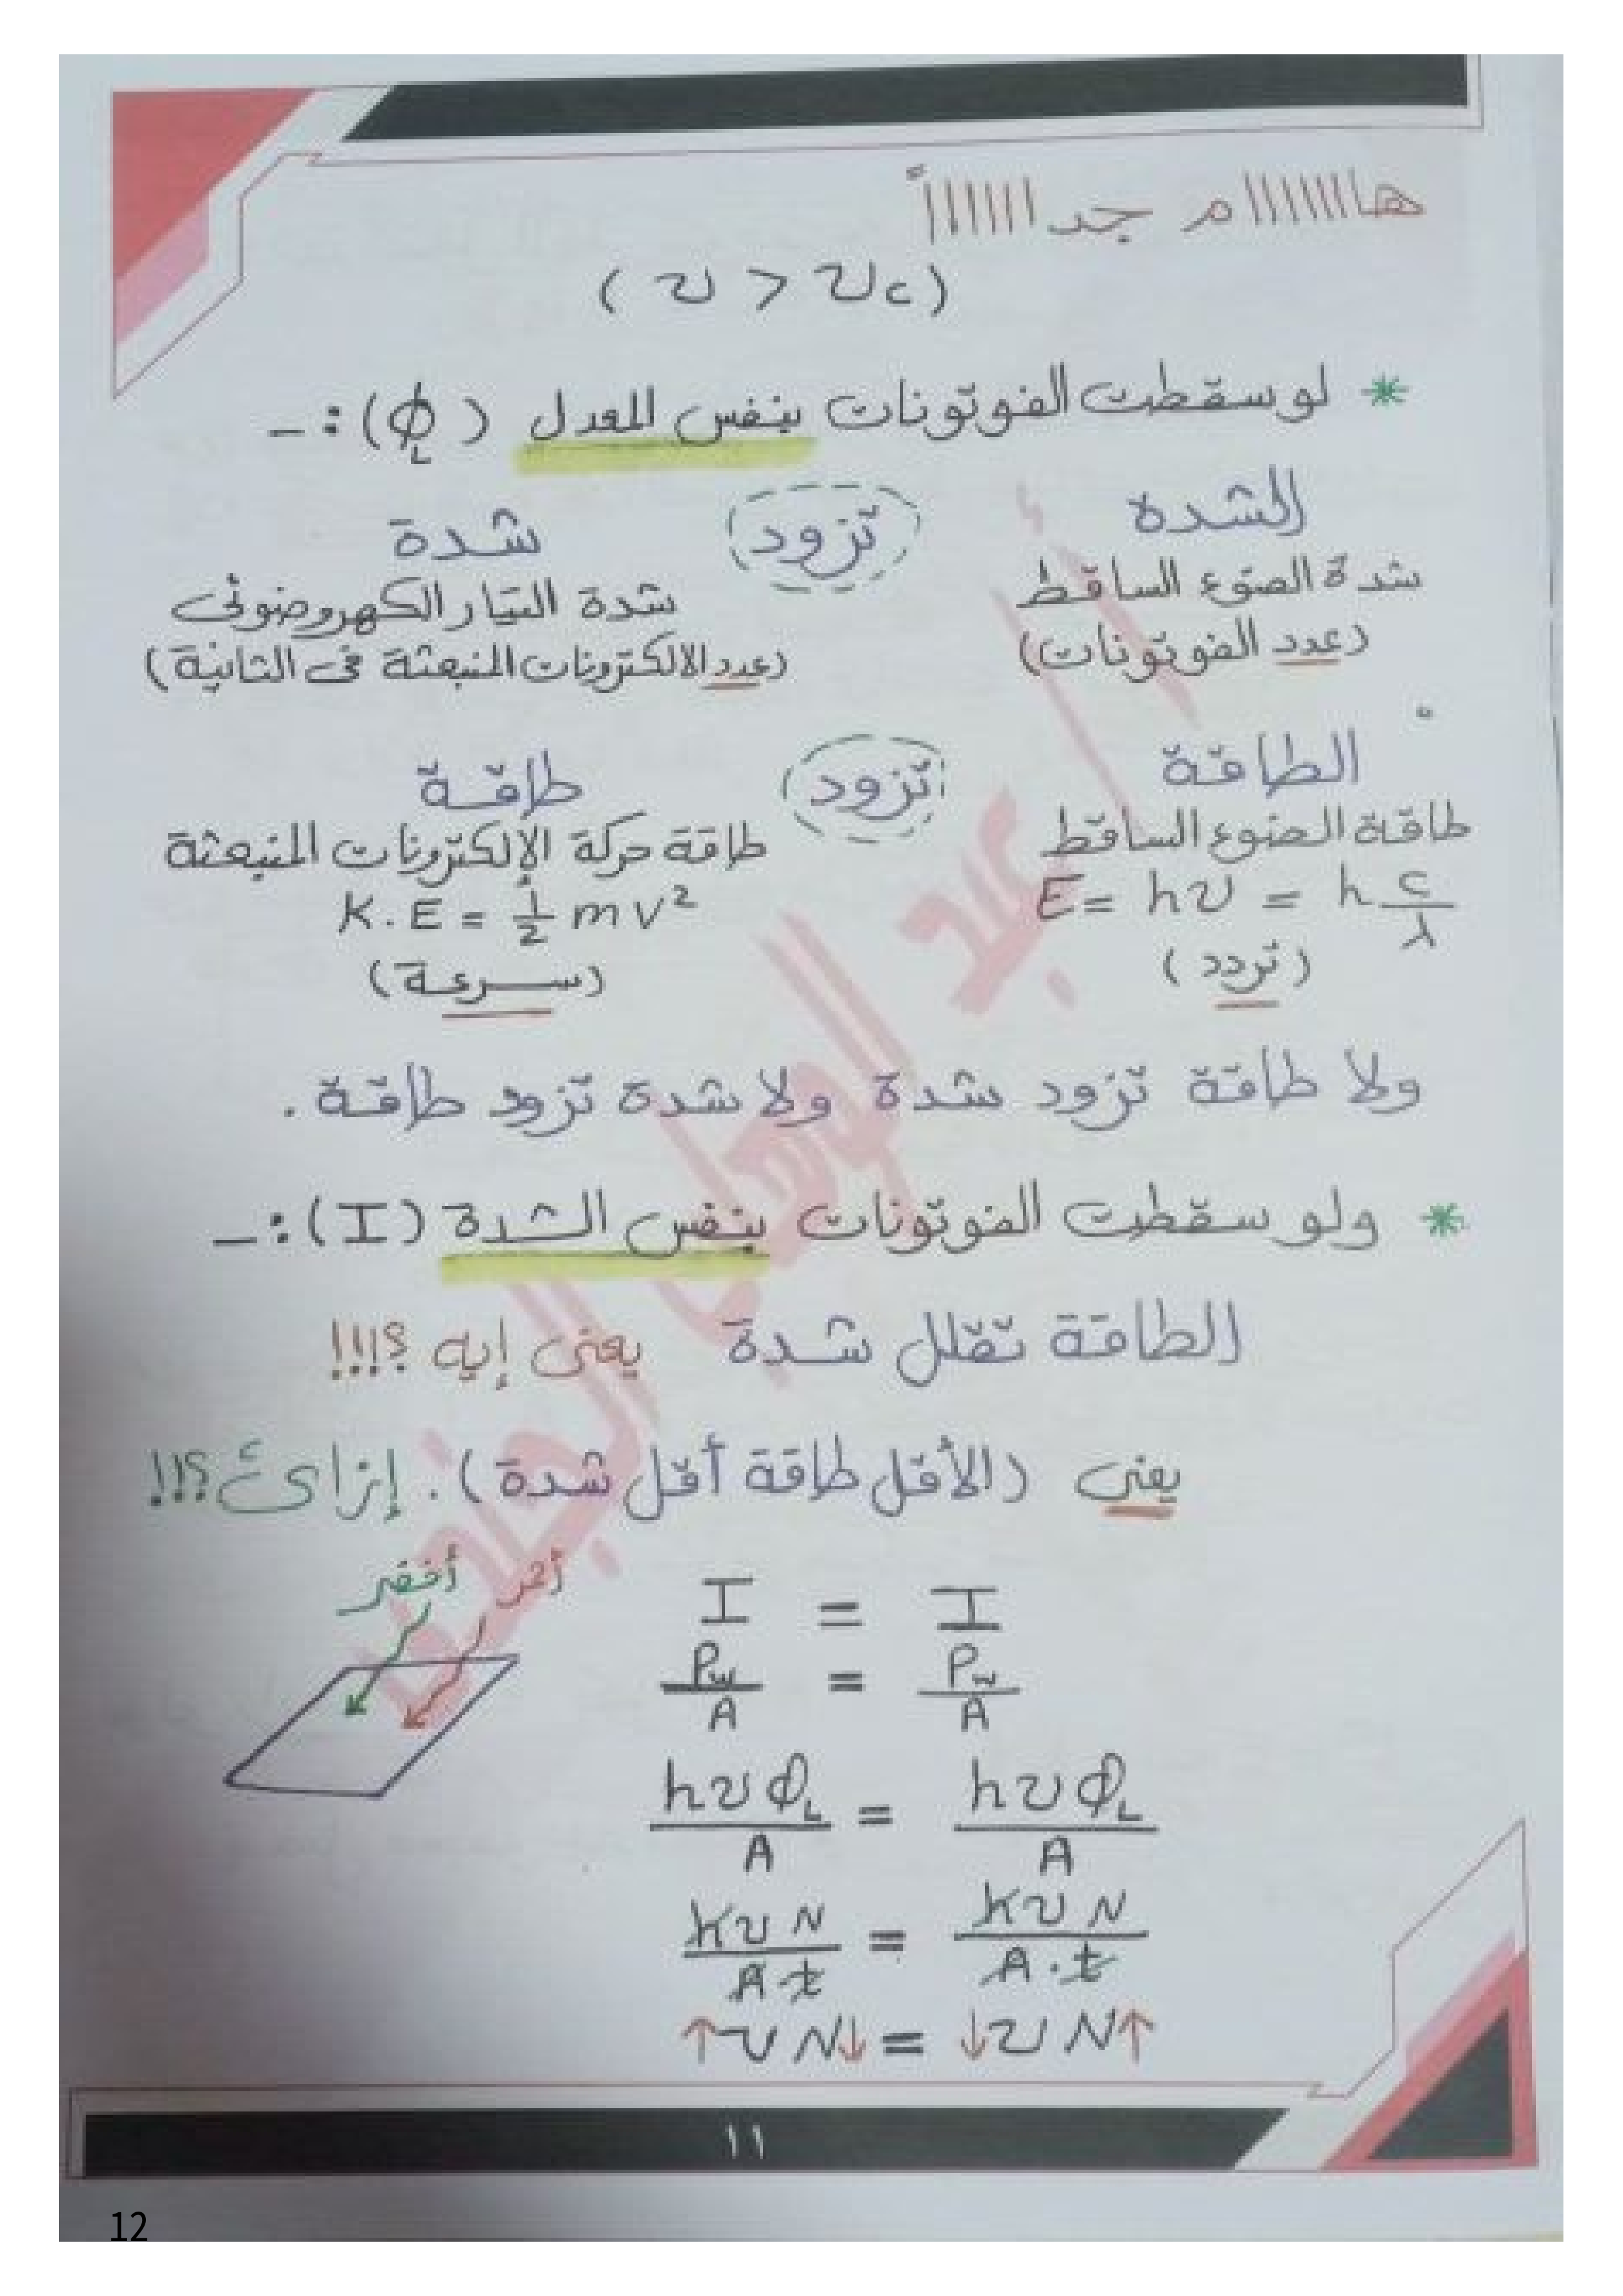 هاااااااام جدااااااً
( υ > υc )
* لو سقطت الفوتونات بنفس المعدل (ϕL) :-
الشدة تزود شدة
شدة الضوء الساقط شدة التيار الكهروضوئى
(عدد الفوتونات) (عدد الالكترونات المنبعثة فى الثانية)
الطاقة تزود طاقة
طاقة الضوء الساقط طاقة حركة الإلكترونات المنبعثة
E = hυ = h c/λ K.E = 1/2 mv²
(تردد) (سرعة)
ولا طاقة تزود شدة ولا شدة تزود طاقة .
* ولو سقطت الفوتونات بنفس الشدة (I) :-
الطاقة تقلل شدة يعنى إيه ؟!!!
يعنى (الأقل طاقة أقل شدة) . إزاىء ؟!!!
أحمر أخضر
I = I
Pw/A = Pw/A
hυϕL/A = hυϕL/A
hυN/A.t = hυN/A.t
↑υN↓ = ↓υN↑
١١
12